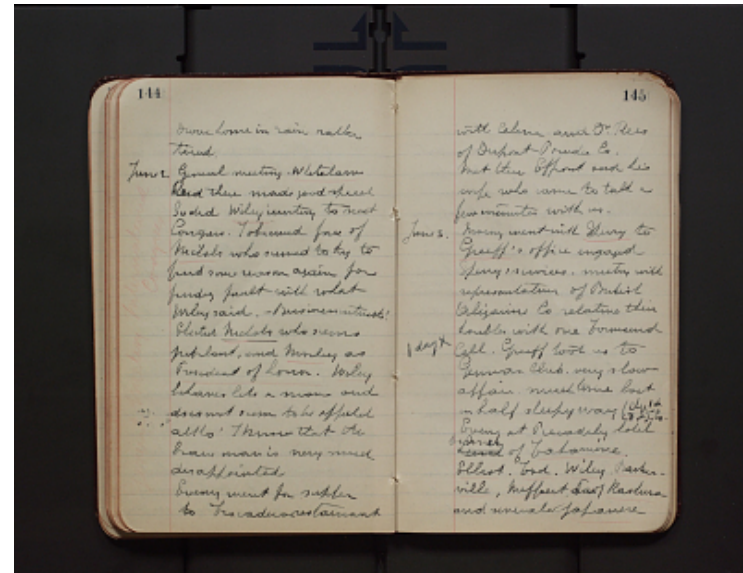 144
home in rain rather
tired.
June 2. General meeting.
there made good speech
Wiley inviting to next
Congress. I observed face of
Nichols who seemed to try to
find some reason again for
finding fault with what
Wiley said.
Elected Nichols who seems
jubilant, and Morley as
President of honor. Wiley
behaves like a man and
does not seem to be affected
at all. I know that the
brave man is very much
disappointed
Evening went for supper
to Trocadero restaurant
145
with Celine and Dr. Reese
of Dupont Powder Co.
Met there and his
wife who came to talk a
few minutes with us.
June 3. went with to
Greeff's office engaged
services. meeting with
representative of British
Alizarine Co relative their
trouble with one Townsend
Cell. Greeff took us to
German Club. very slow
affair. much time lost
in half sleepy way
Evening at Piccadilly hotel
dinner of Takamine.
Elliott. Wiley. Basker-
ville,
and several Japanese